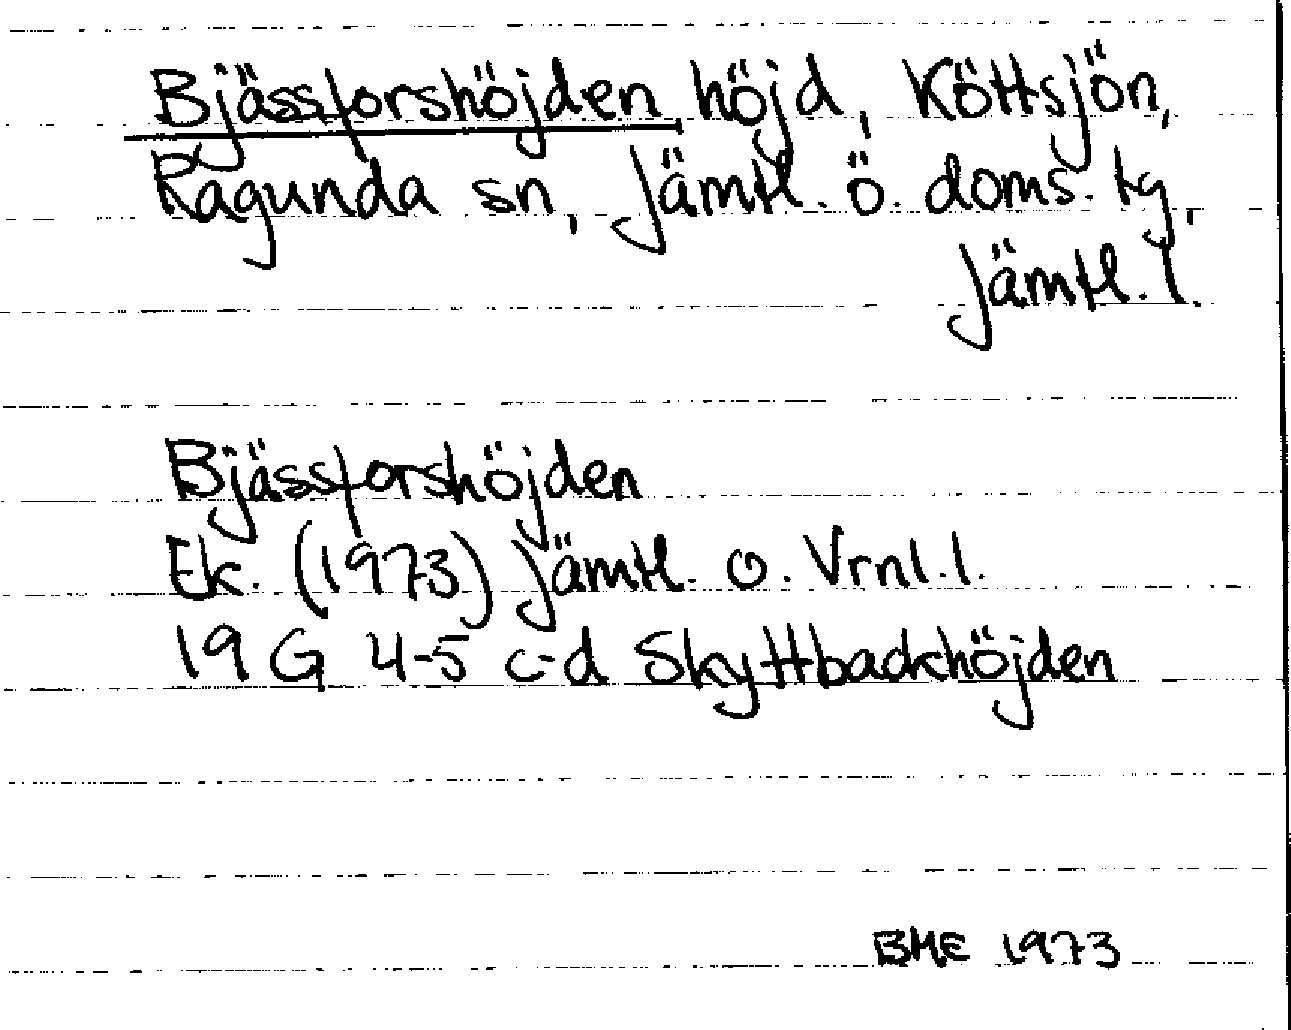 Bjässforshöjden höjd, Köttsjön,
Ragunda sn, Jämtl. ö. doms. tg,
Jämtl. l.
Bjässforshöjden
Ek. (1973) Jämtl. o. Vrnl. l.
19 G 4-5 c-d Skyttbackhöjden
BME 1973